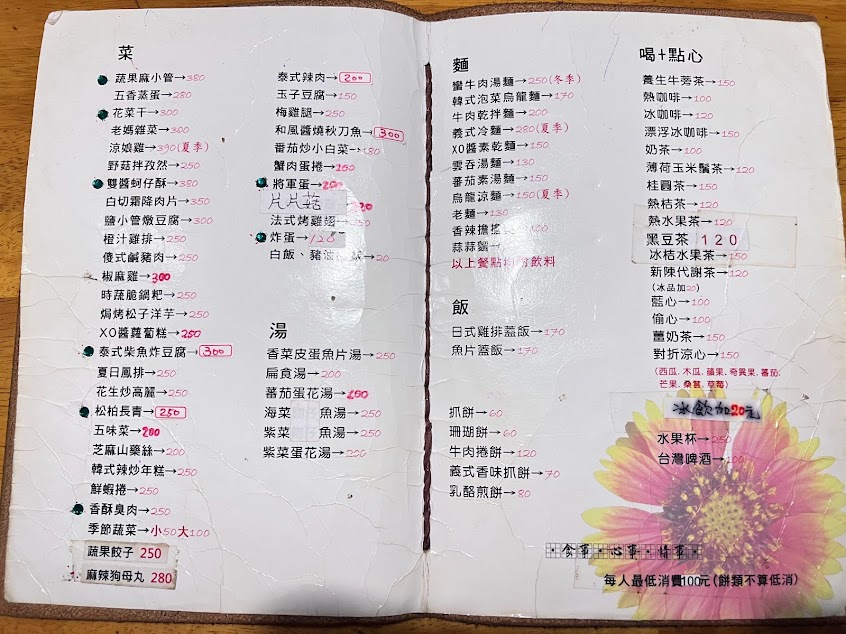 菜
蔬果麻小管→380
五香蒸蛋→280
花菜干→300
老媽雜菜→300
涼娘雞→390(夏季)
野菇拌孜然→250
雙醬蚵仔酥→380
白切霜降肉片→350
鹽小管燉豆腐→300
橙汁雞排→250
傻式鹹豬肉→250
椒麻雞→300
時蔬脆鍋粑→250
焗烤松子洋芋→250
XO醬蘿蔔糕→250
泰式柴魚炸豆腐→300
夏日鳳排→250
花生炒高麗→250
松柏長青→250
五味菜→200
芝麻山藥絲→200
韓式辣炒年糕→250
鮮蝦捲→250
香酥臭肉→250
季節蔬菜→小50大100
蔬果餃子 250
麻辣狗母丸 280
泰式辣肉→200
玉子豆腐→150
梅雞腿→250
和風醬燒秋刀魚→300
番茄炒小白菜→180
蟹肉蛋捲→200
將軍蛋→200
片片菇
法式烤雞翅
炸蛋→120
白飯、豬油 →20
湯
香菜皮蛋魚片湯→250
扁食湯→200
蕃茄蛋花湯→200
海菜 魚湯→250
紫菜 魚湯→250
紫菜蛋花湯→200
麵
蠻牛肉湯麵→250(冬季)
韓式泡菜烏龍麵→170
牛肉乾拌麵→200
義式冷麵→280(夏季)
XO醬素乾麵→150
雲吞湯麵→130
蕃茄素湯麵→150
烏龍涼麵→150(夏季)
老麵→130
香辣擔
蒜蒜麵
以上餐點均附飲料
飯
日式雞排蓋飯→170
魚片蓋飯→170
抓餅→60
珊瑚餅→60
牛肉捲餅→120
義式香味抓餅→70
乳酪煎餅→80
喝+點心
養生牛蒡茶→150
熱咖啡→100
冰咖啡→120
漂浮冰咖啡→150
奶茶→100
薄荷玉米鬚茶→120
桂圓茶→150
熱桔茶→120
熱水果茶→120
黑豆茶 120
冰桔水果茶→150
新陳代謝茶→120
(冰品加20)
藍心→100
偷心→100
薑奶茶→150
對折涼心→150
(西瓜、木瓜、蘋果、奇異果、蕃茄、
芒果、桑葚、草莓)
冰飲加20元
水果杯→250
台灣啤酒→100
・食事・心事・情事・
每人最低消費100元(餅類不算低消)